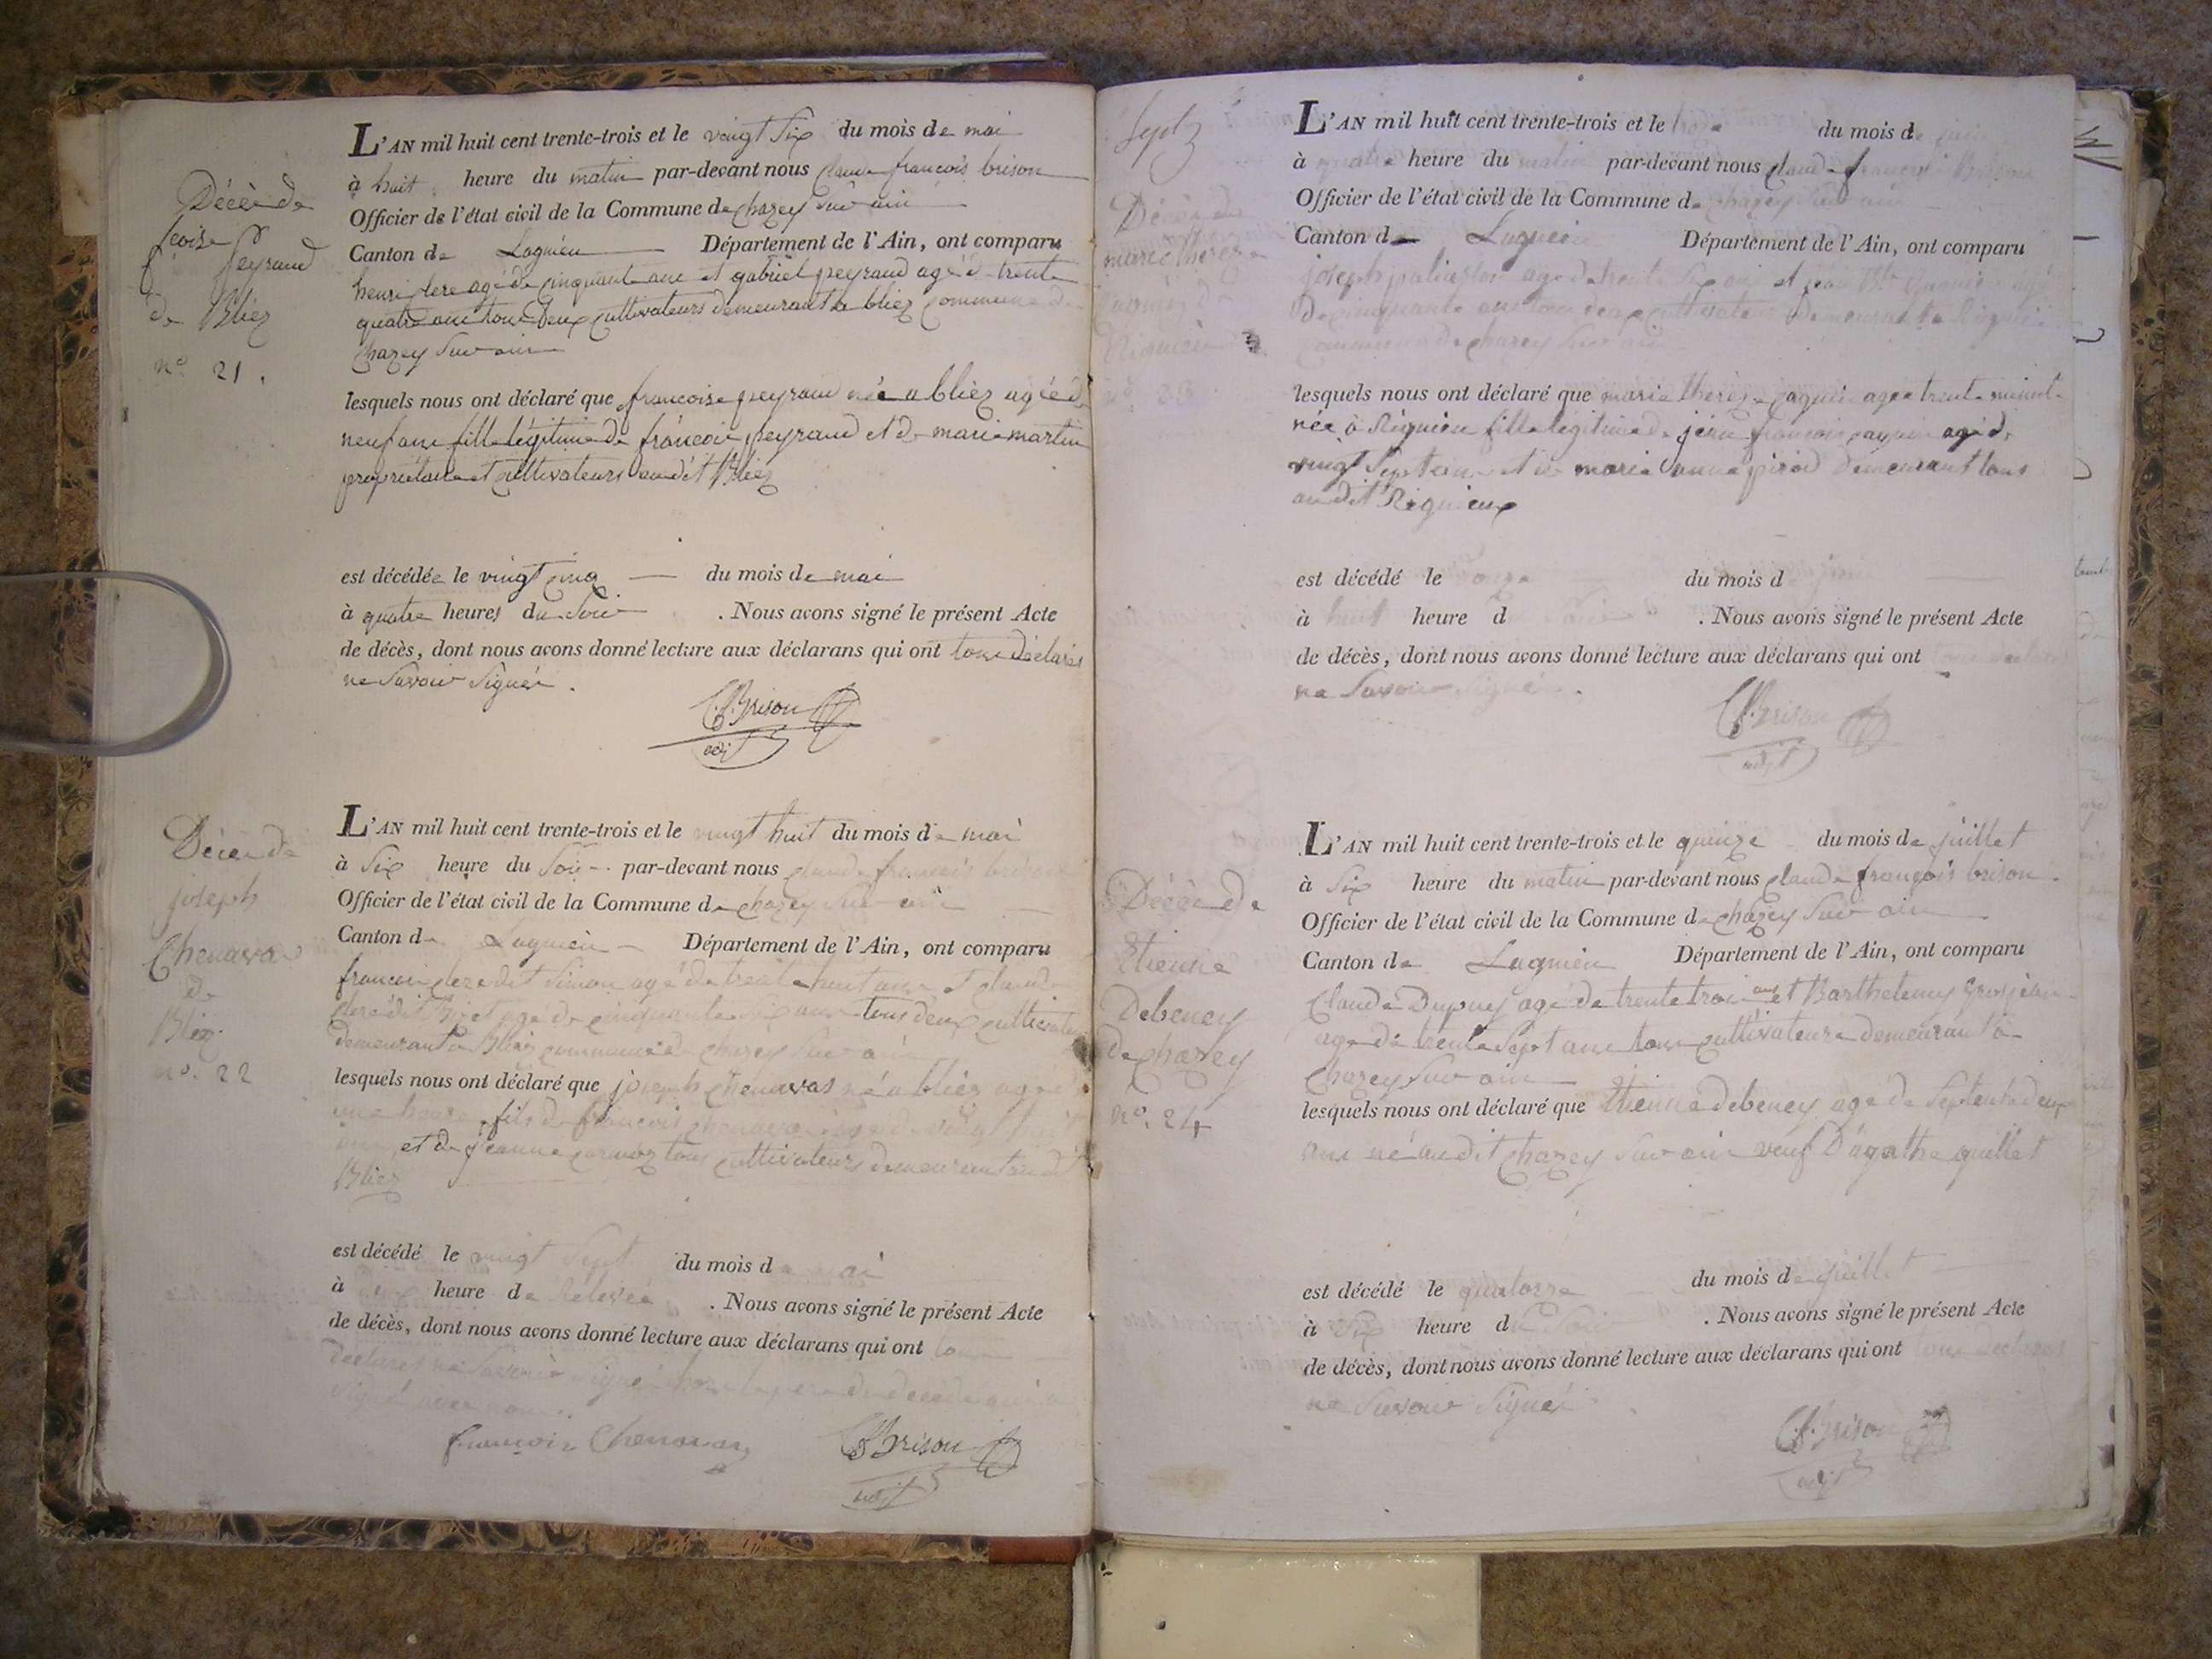 Décès de
fcoise
Peyraud
de Bliez
n° 21.
L'AN mil huit cent trente-trois et le vingt six du mois de mai
à huit heure du matin par-devant nous claude francois brison
Officier de l'état civil de la Commune de chazey sur ain
Canton de Lagnieu Département de l'Ain, ont comparu
henri clere agé de cinquante ans et gabriel peyraud agé de trente
quatre ans tous deux cultivateurs demeurant a bliez commune de
chazey sur ain
lesquels nous ont déclaré que francoise peyraud née a bliez agée de
neuf ans fille légitime de francois peyraud et de marie martin
propriétaire et cultivateurs audit Bliez
est décédée le vingt cinq du mois de mai
à quatre heures du soir . Nous avons signé le présent Acte
de décès, dont nous avons donné lecture aux déclarans qui ont tous déclarés
ne savoir signer.
C.f. Brison
adjt
Décès de
joseph
Chenavas
de
Bliez
n°. 22
L'AN mil huit cent trente-trois et le vingt huit du mois de mai
à six heure du soir par-devant nous claude francois brison
Officier de l'état civil de la Commune de chazey sur ain
Canton de Lagnieu Département de l'Ain, ont comparu
francois clere dit Simon agé de trente huit ans et claude
clere dit agé de cinquante six ans tous deux cultivateurs
demeurant a Bliez commune de chazey sur ain
lesquels nous ont déclaré que joseph chenavas né a bliez agé
une heure, fils de francois chenavas agé de vingt
ans, et de jeanne tous cultivateurs demeurant audit
Bliez
est décédé le vingt sept du mois de mai
à heure de relevée . Nous avons signé le présent Acte
de décès, dont nous avons donné lecture aux déclarans qui ont tous
déclarés ne savoir signer le pere du décédé qui a
signé avec nous.
francois Chenavas C.f. Brison
adjt
Sept
Décès de
marie therese
de
Rignieu
n° 23.
L'AN mil huit cent trente-trois et le treize du mois de juin
à quatre heure du matin par-devant nous claude francois Brison
Officier de l'état civil de la Commune de chazey sur ain
Canton de Lagnieu Département de l'Ain, ont comparu
joseph agé de trente six ans et jean agé
de cinquante ans tous deux cultivateurs demeurant a Rignieu
commune de chazey sur ain
lesquels nous ont déclaré que marie therese agée trente minute
née à Rignieu fille legitime de jean francois agé de
vingt sept ans et de marie anne demeurant tous
audit Rignieux
est décédé le onze du mois d juin
à huit heure d soir . Nous avons signé le présent Acte
de décès, dont nous avons donné lecture aux déclarans qui ont
ne savoir signer.
C.f. Brison
adjt
Décès de
Etienne
Debeney
de chazey
n°. 24
L'AN mil huit cent trente-trois et le quinze du mois de juillet
à six heure du matin par-devant nous claude françois brison.
Officier de l'état civil de la Commune de chazey sur ain
Canton de Lagnieu Département de l'Ain, ont comparu
Claude Dupuy agé de trente trois ans et Barthelemy Grosjean
agé de trente sept ans tous cultivateurs demeurant à
chazey sur ain
lesquels nous ont déclaré que Etienne debeney agé de septente deux
ans né audit chazey sur ain veuf D'agathe quillet
est décédé le quatorze du mois de juillet
à six heure du soir . Nous avons signé le présent Acte
de décès, dont nous avons donné lecture aux déclarans qui ont tous déclarés
ne savoir signer
C.f. Brison
adjt